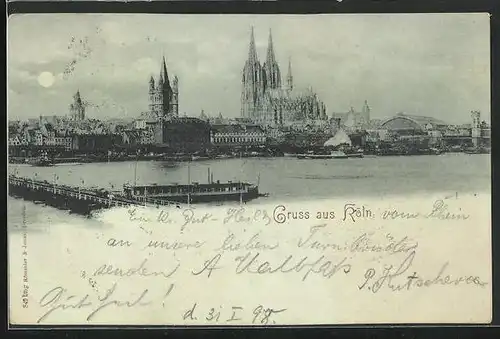 Gruss aus Köln
Ein kr. Gut-Heil vom Rhein
an unsere lieben Turnbrüder
senden A Kaltfass
P. Kutschera
Gut Heil!
d. 31 I 98.